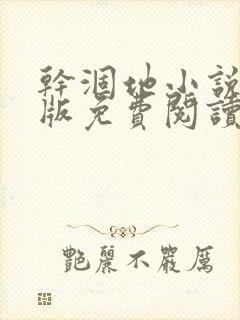 幹涸地小說
版免費閱讀
艷麗不嚴厲